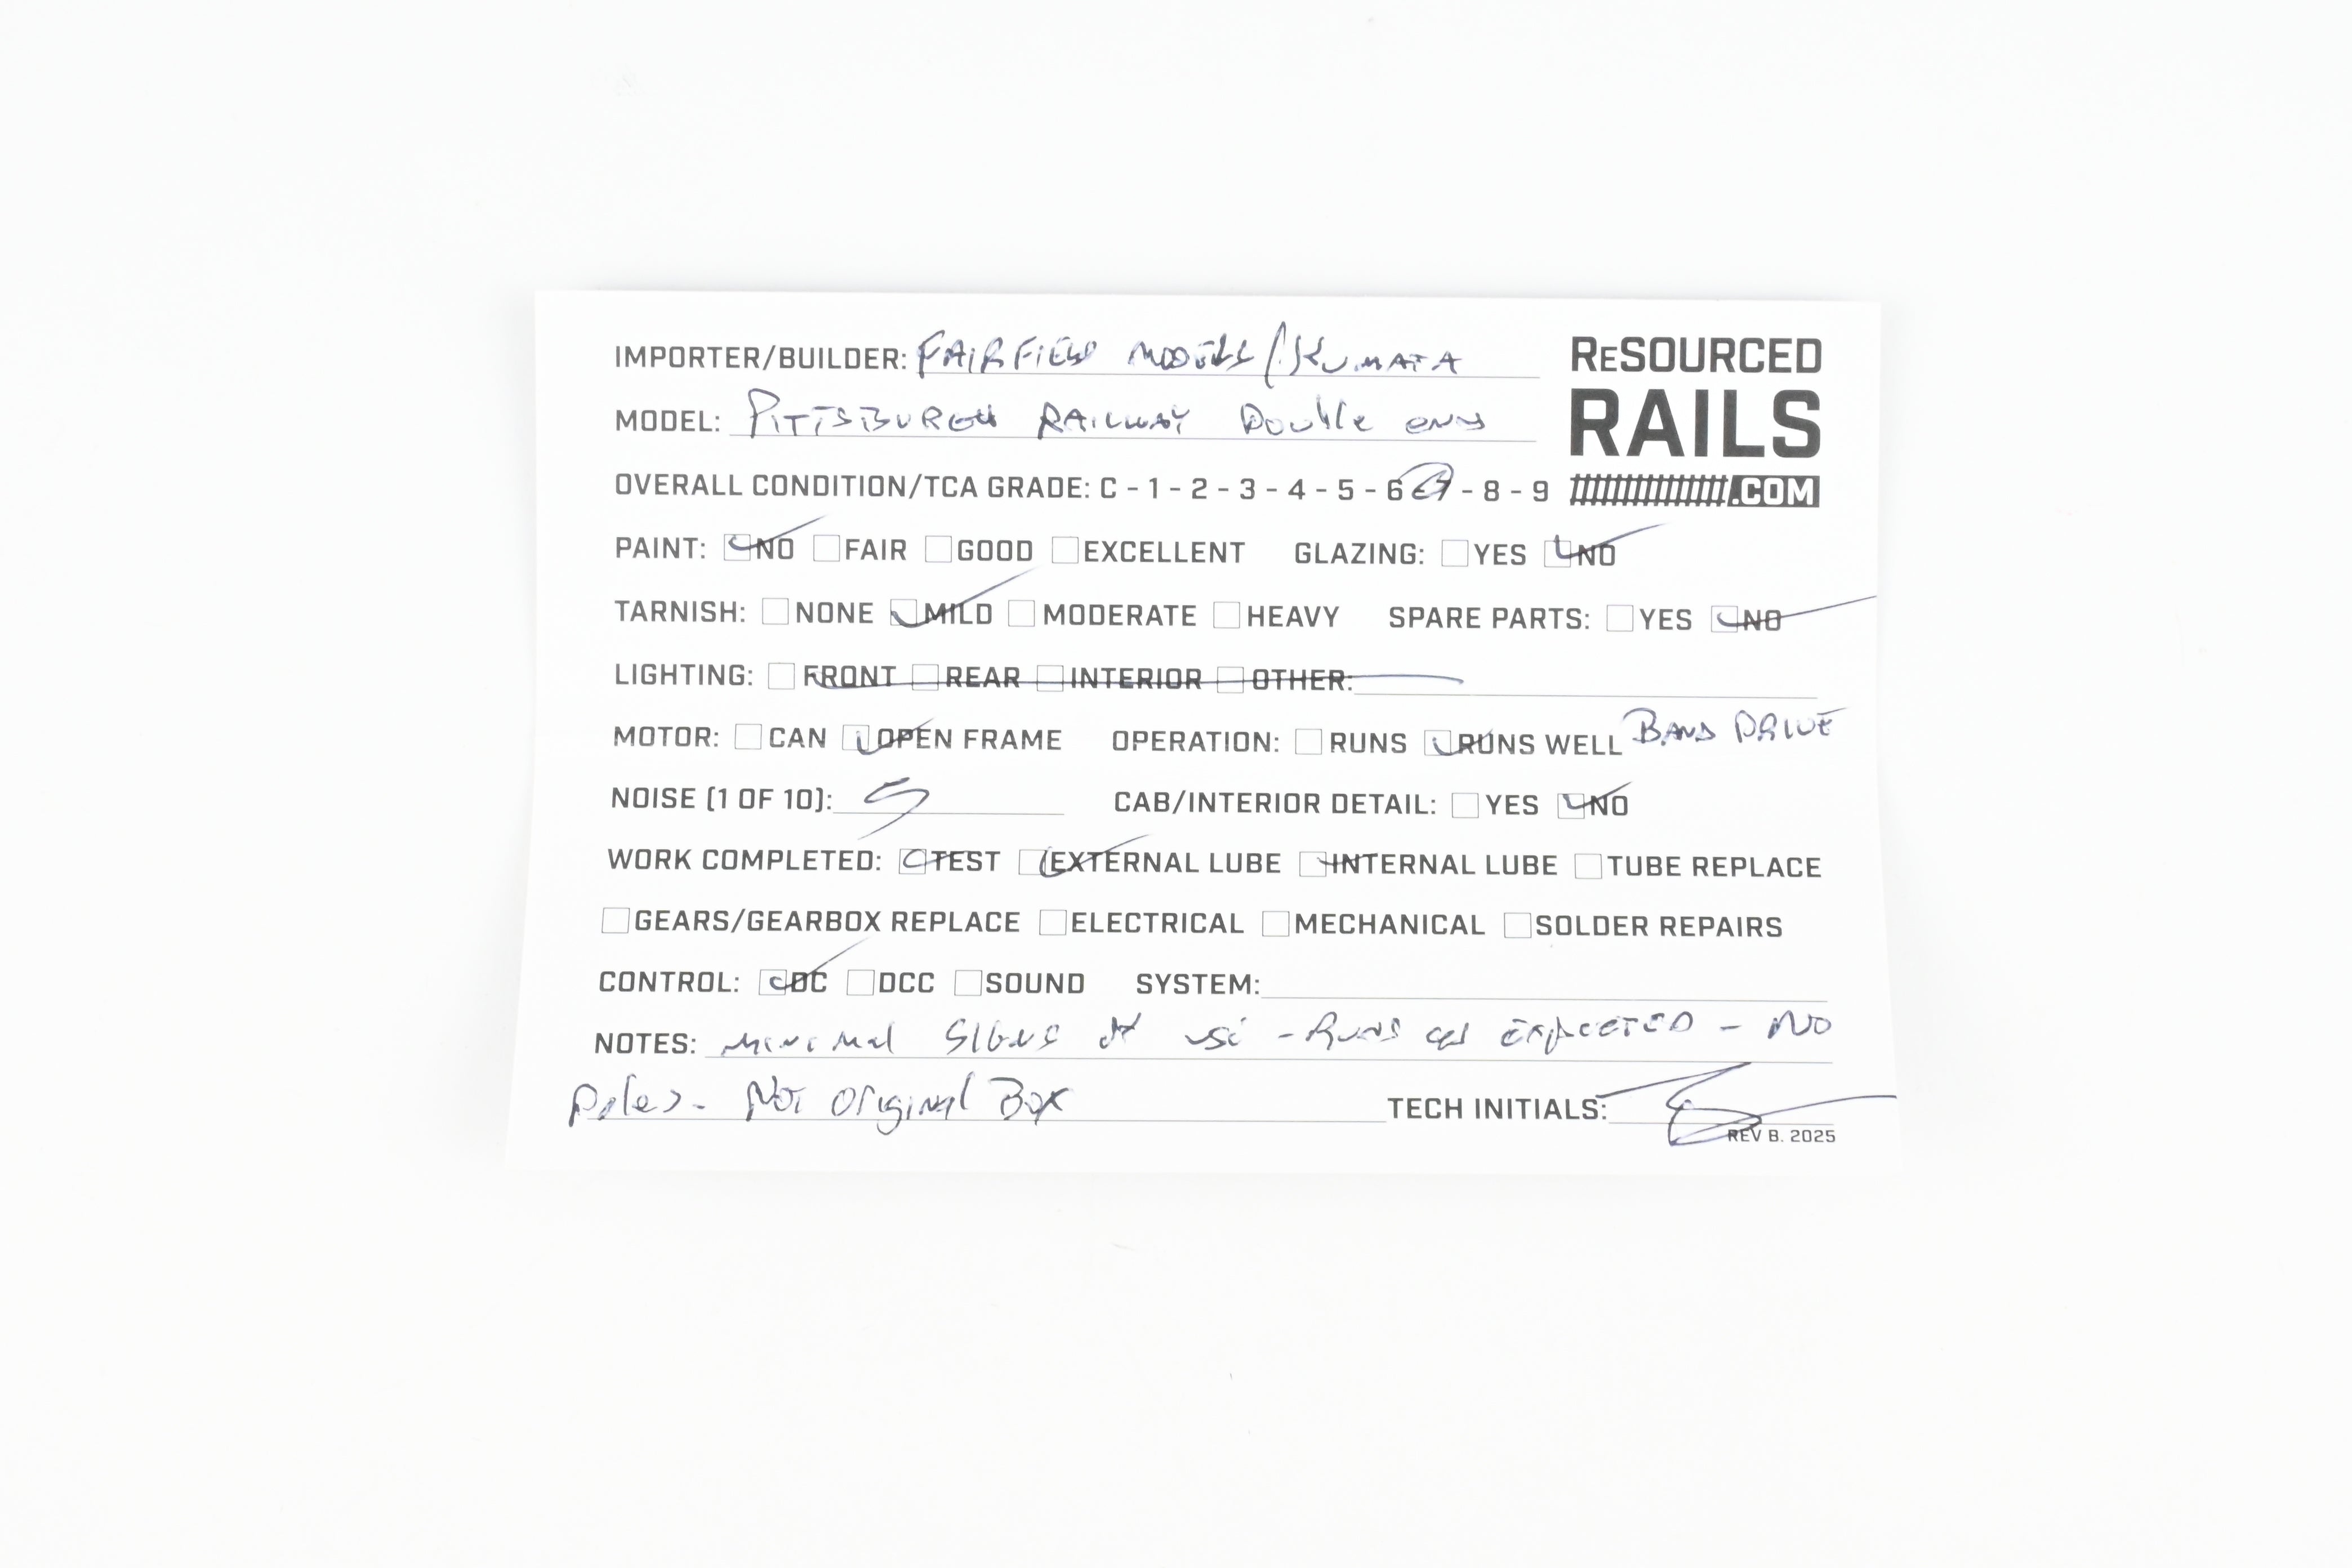 IMPORTER/BUILDER: FAIRFIELD MODELS/KUMATA
RESOURCED
RAILS
.COM
MODEL: PITTSBURGH RAILWAY Double END
OVERALL CONDITION/TCA GRADE: C - 1 - 2 - 3 - 4 - 5 - 6 - 7 - 8 - 9
PAINT: NO FAIR GOOD EXCELLENT GLAZING: YES NO
TARNISH: NONE MILD MODERATE HEAVY SPARE PARTS: YES NO
LIGHTING: FRONT REAR INTERIOR OTHER:
MOTOR: CAN OPEN FRAME OPERATION: RUNS RUNS WELL BAND DRIVE
NOISE (1 OF 10): 5 CAB/INTERIOR DETAIL: YES NO
WORK COMPLETED: TEST EXTERNAL LUBE INTERNAL LUBE TUBE REPLACE
GEARS/GEARBOX REPLACE ELECTRICAL MECHANICAL SOLDER REPAIRS
CONTROL: DC DCC SOUND SYSTEM:
NOTES: Minimal Signs of use - Runs as EXPECTED - NO
Poles - Not Original Box TECH INITIALS:
REV B. 2025